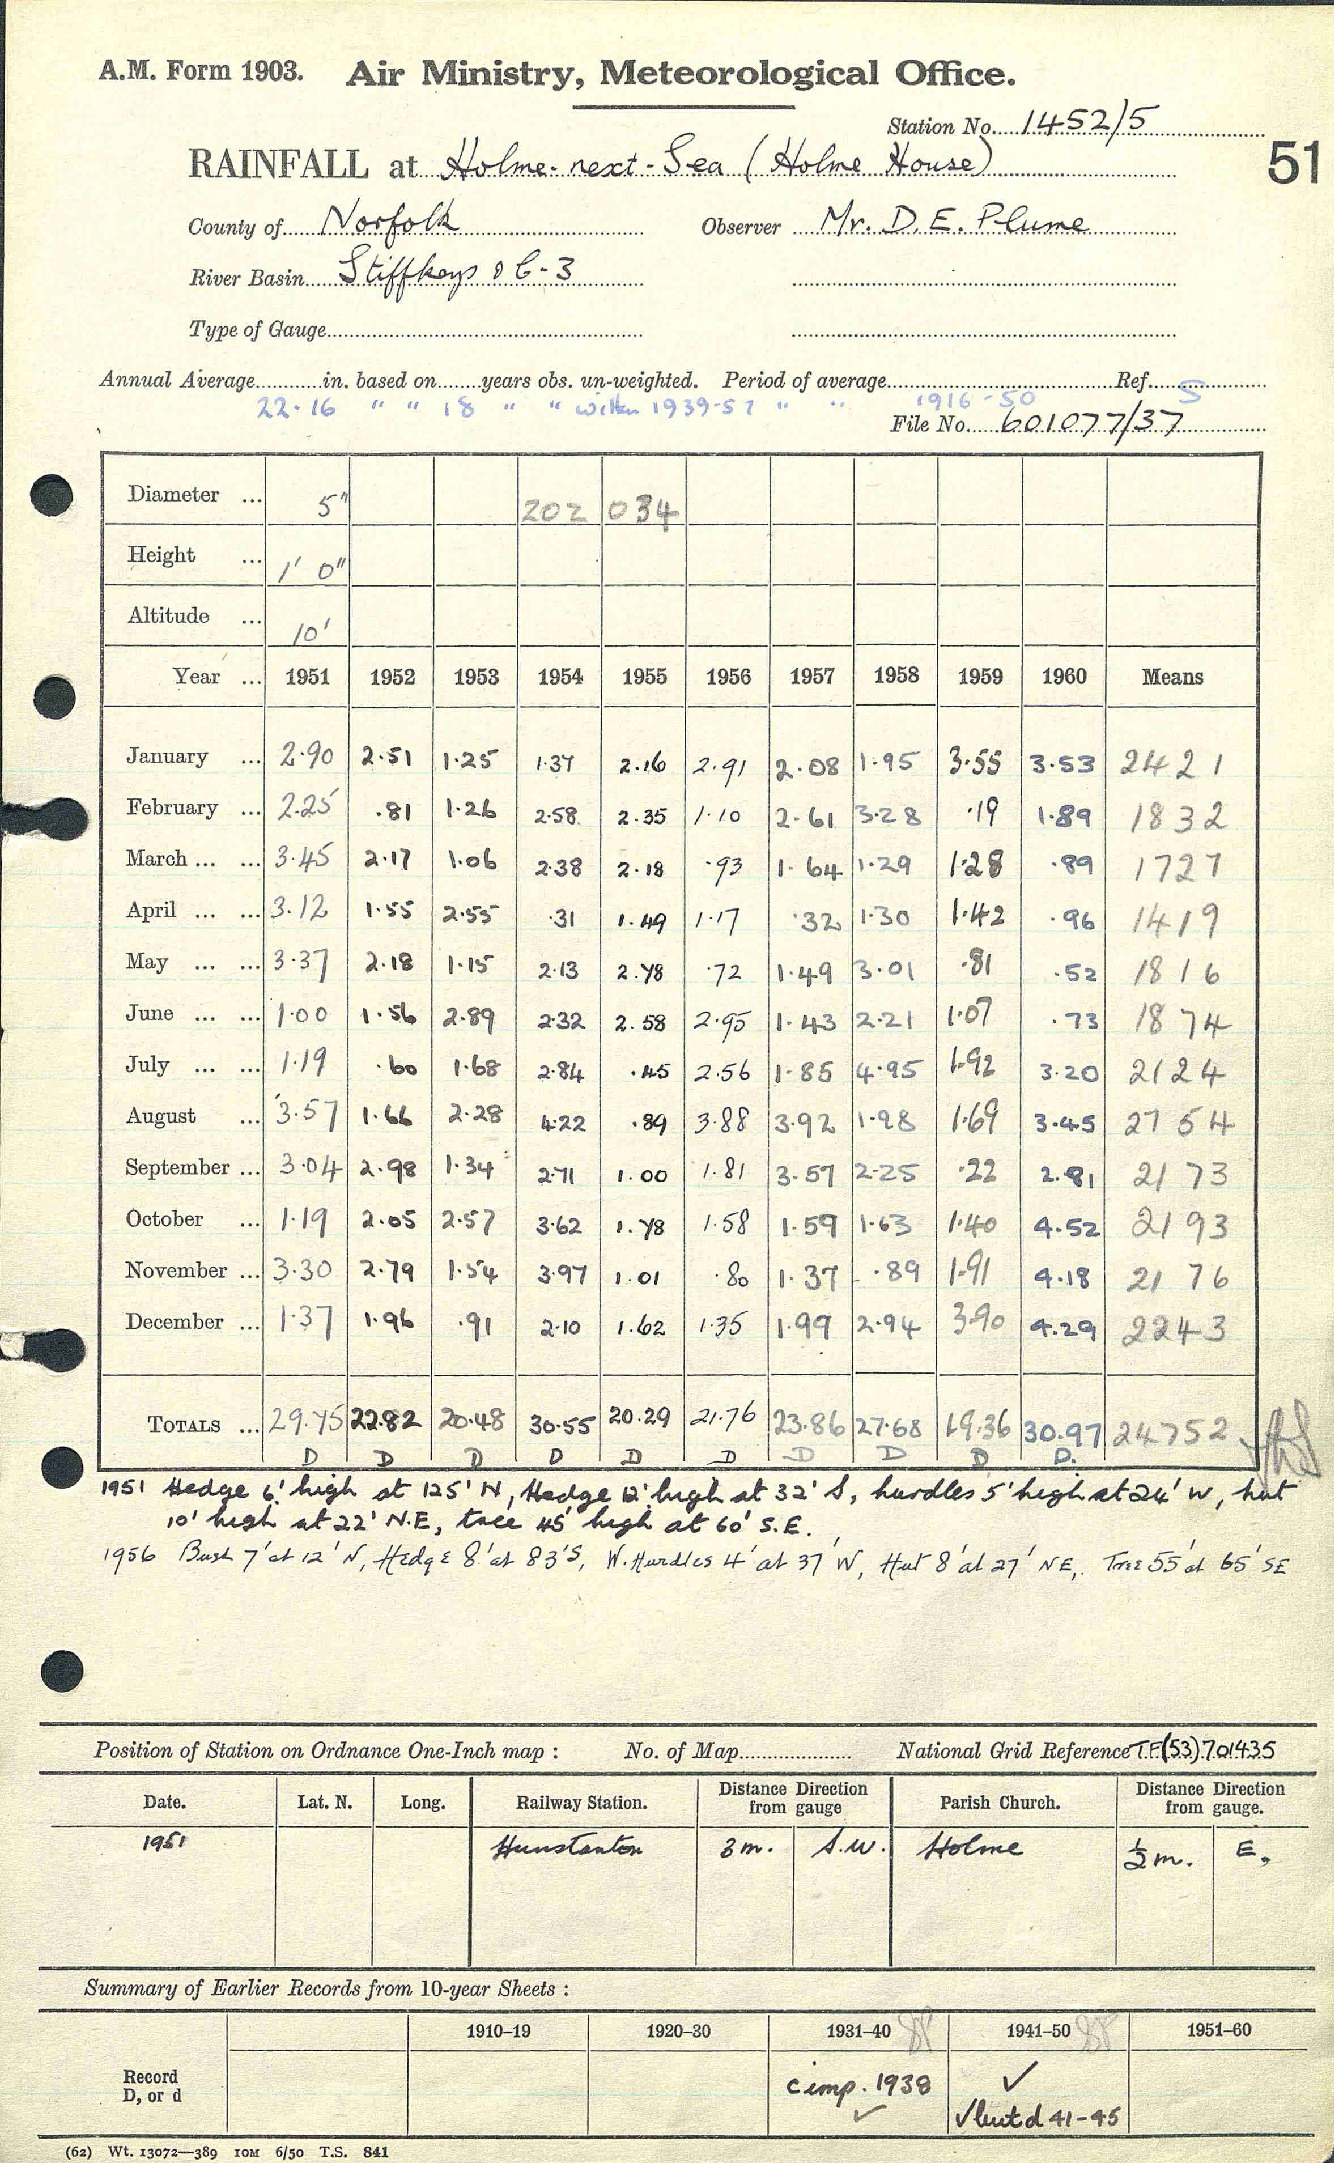 A.M. Form 1903. Air Ministry, Meteorological Office.
Station No. 1452/5
51
RAINFALL at Holme-next-Sea (Holme House)
County of Norfolk Observer Mr. D. E. Plume
River Basin Stiffkeys & 6-3
Type of Gauge
Annual Average in. based on years obs. un-weighted. Period of average Ref. 5
22.16 " " 18 " " within 1939-57 " " 1916-50
File No. 601077/37
Diameter ... 5" 202 034
Height ... 1' 0"
Altitude ... 10'
Year ... 1951 1952 1953 1954 1955 1956 1957 1958 1959 1960 Means
January ... 2.90 2.51 1.25 1.37 2.16 2.91 2.08 1.95 3.55 3.53 2421
February ... 2.25 .81 1.26 2.58 2.35 1.10 2.61 3.28 .19 1.89 1832
March ... ... 3.45 2.17 1.06 2.38 2.18 .93 1.64 1.29 1.28 .89 1727
April ... ... 3.12 1.55 2.55 .31 1.49 1.17 .32 1.30 1.42 .96 1419
May ... ... 3.37 2.18 1.15 2.13 2.78 .72 1.49 3.01 .81 .52 1816
June ... ... 1.00 1.56 2.89 2.32 2.58 2.95 1.43 2.21 1.07 .73 1874
July ... ... 1.19 .60 1.68 2.84 .45 2.56 1.85 4.95 1.92 3.20 2124
August ... 3.57 1.66 2.28 4.22 .89 3.88 3.92 1.98 1.69 3.45 2754
September ... 3.04 2.98 1.34 2.71 1.00 1.81 3.57 2.25 .22 2.81 2173
October ... 1.19 2.05 2.57 3.62 1.78 1.58 1.59 1.63 1.40 4.52 2193
November ... 3.30 2.79 1.54 3.97 1.01 .80 1.37 .89 1.91 4.18 2176
December ... 1.37 1.96 .91 2.10 1.62 1.35 1.99 2.94 3.90 4.29 2243
TOTALS ... 29.75 22.82 20.48 30.55 20.29 21.76 23.86 27.68 19.36 30.97 24752
D D D D D D D D D D.
1951 Hedge 6' high at 125' N, Hedge 12' high at 32' S, hurdles 5' high at 24' W, hut
10' high at 22' N.E, tree 45' high at 60' S.E.
1956 Bush 7' at 12' N, Hedge 8' at 83' S, W. Hurdles 4' at 37' W, Hut 8' at 27' NE, Tree 55' at 65' SE
Position of Station on Ordnance One-Inch map : No. of Map National Grid Reference T.F.(53)701435
Date. Lat. N. Long. Railway Station. Distance Direction from gauge Parish Church. Distance Direction from gauge.
1951 Hunstanton 3 m. S.W. Holme ½ m. E.
Summary of Earlier Records from 10-year Sheets :
1910–19 1920–30 1931–40 1941–50 1951–60
Record D, or d c imp. 1938 ✓ ✓
✓ but d 41-45
(62) Wt. 13072—389 IOM 6/50 T.S. 841